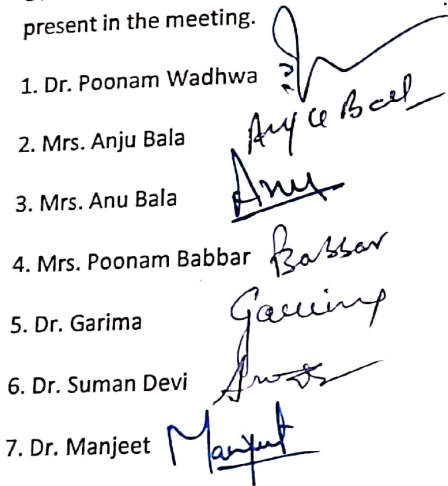 present in the meeting.
1. Dr. Poonam Wadhwa
2. Mrs. Anju Bala Anju Bala
3. Mrs. Anu Bala Anu
4. Mrs. Poonam Babbar Babbar
5. Dr. Garima Garima
6. Dr. Suman Devi
7. Dr. Manjeet Manjeet